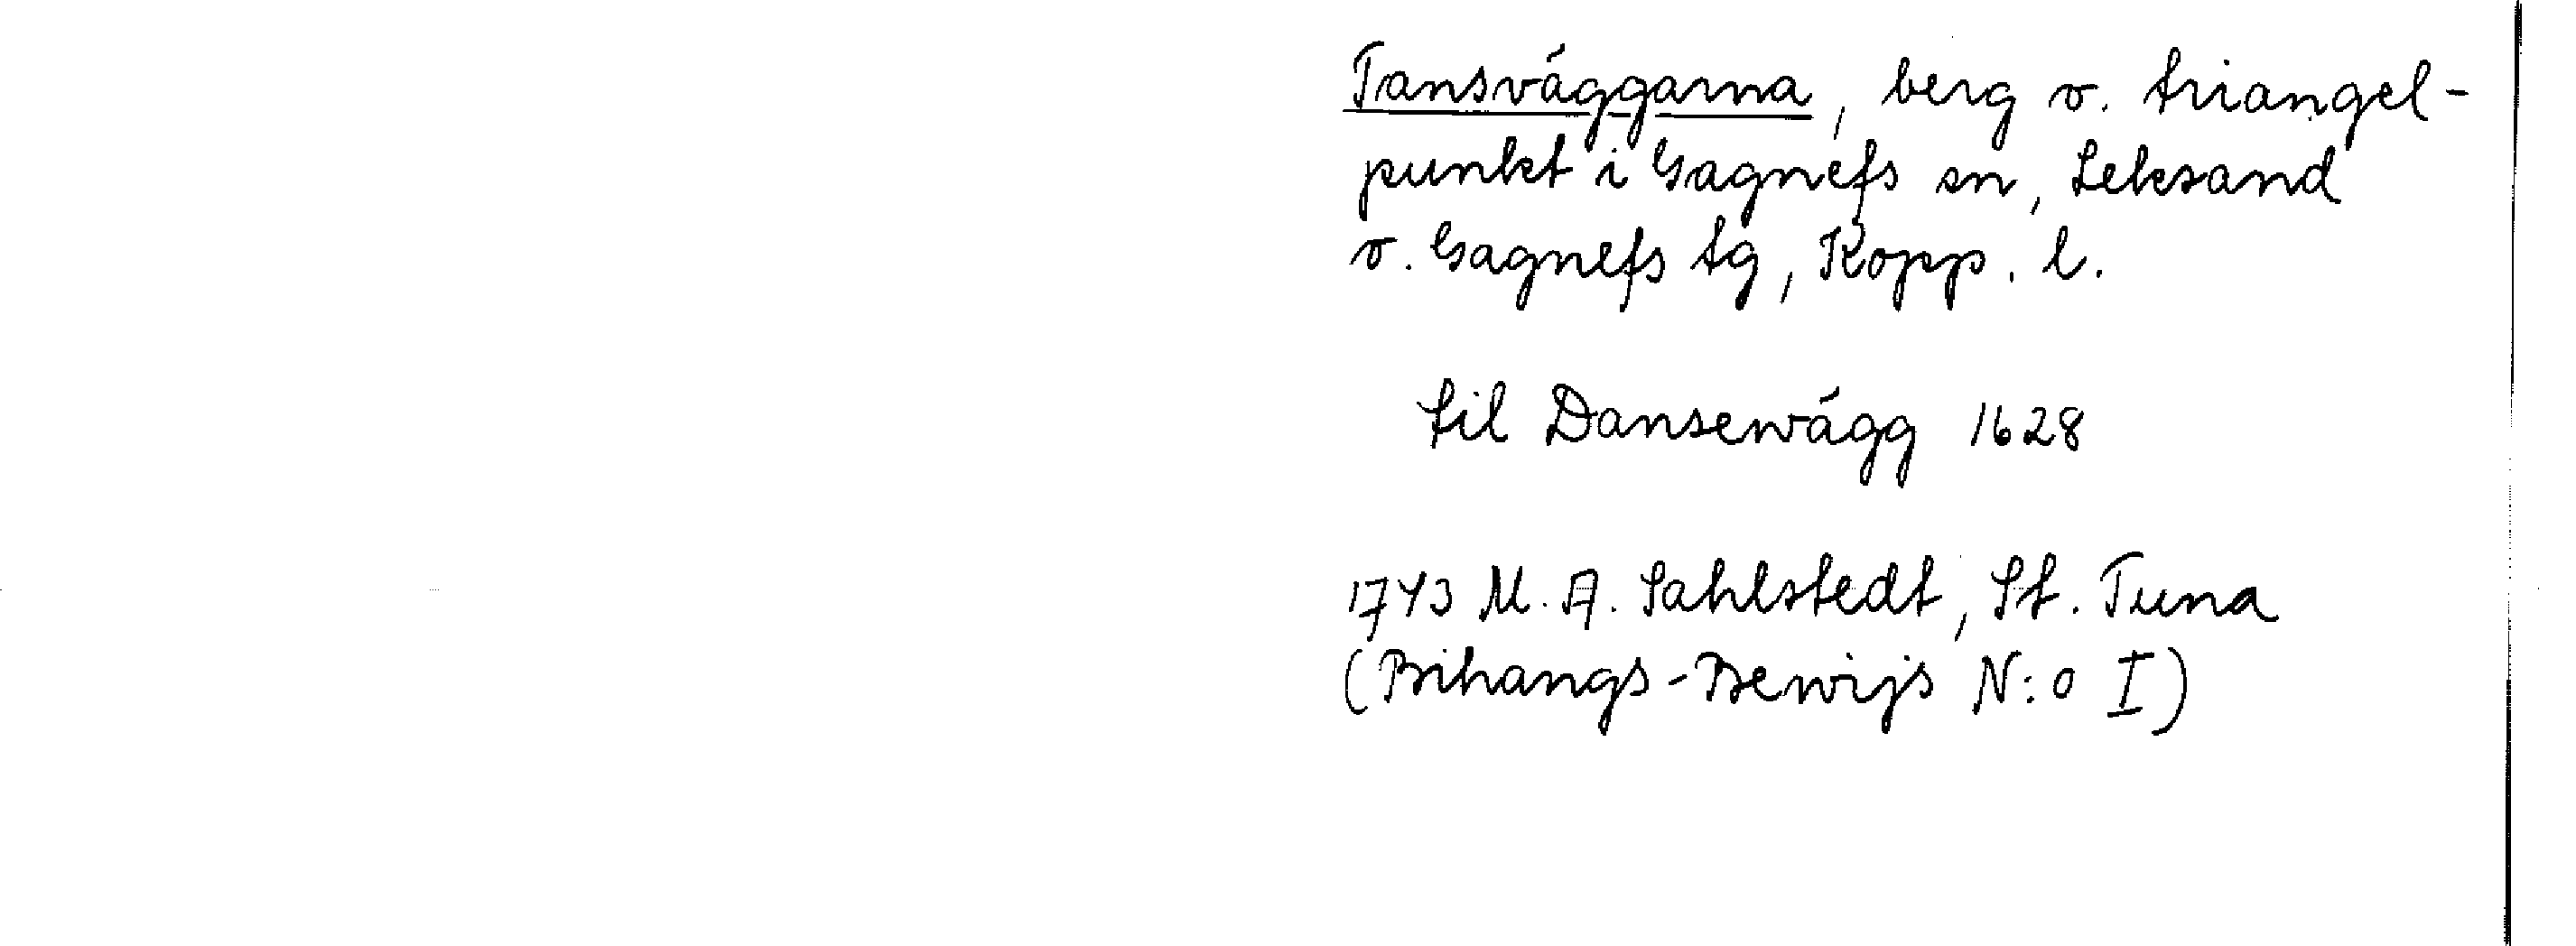 Tansväggarna, berg o. triangel-
punkt i Gagnefs sn, Leksand
o. Gagnefs tg, Kopp. l.
til Dansewägg 1628
1743 M. A. Sahlstedt, St. Tuna
(Bihangs-Bewijs N:o I)